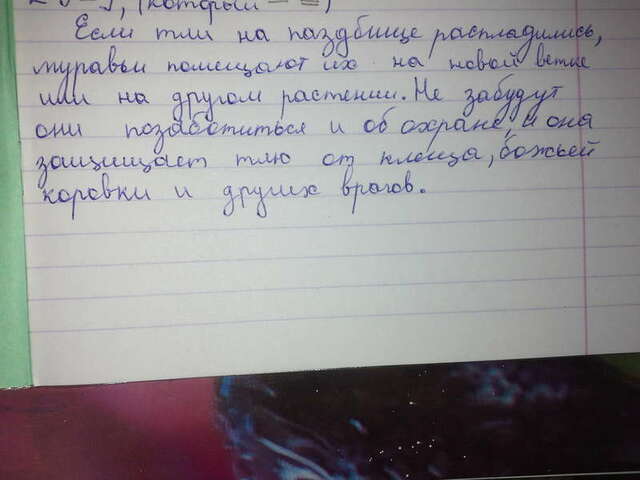 (который — =)
Если тли на паздбище расплодились,
муравьи помещают их на новой ветке
или на другом растении. Не забудут
они позаботиться и об охране, и она
защищает тлю от клеща, божьей
коровки и других врагов.